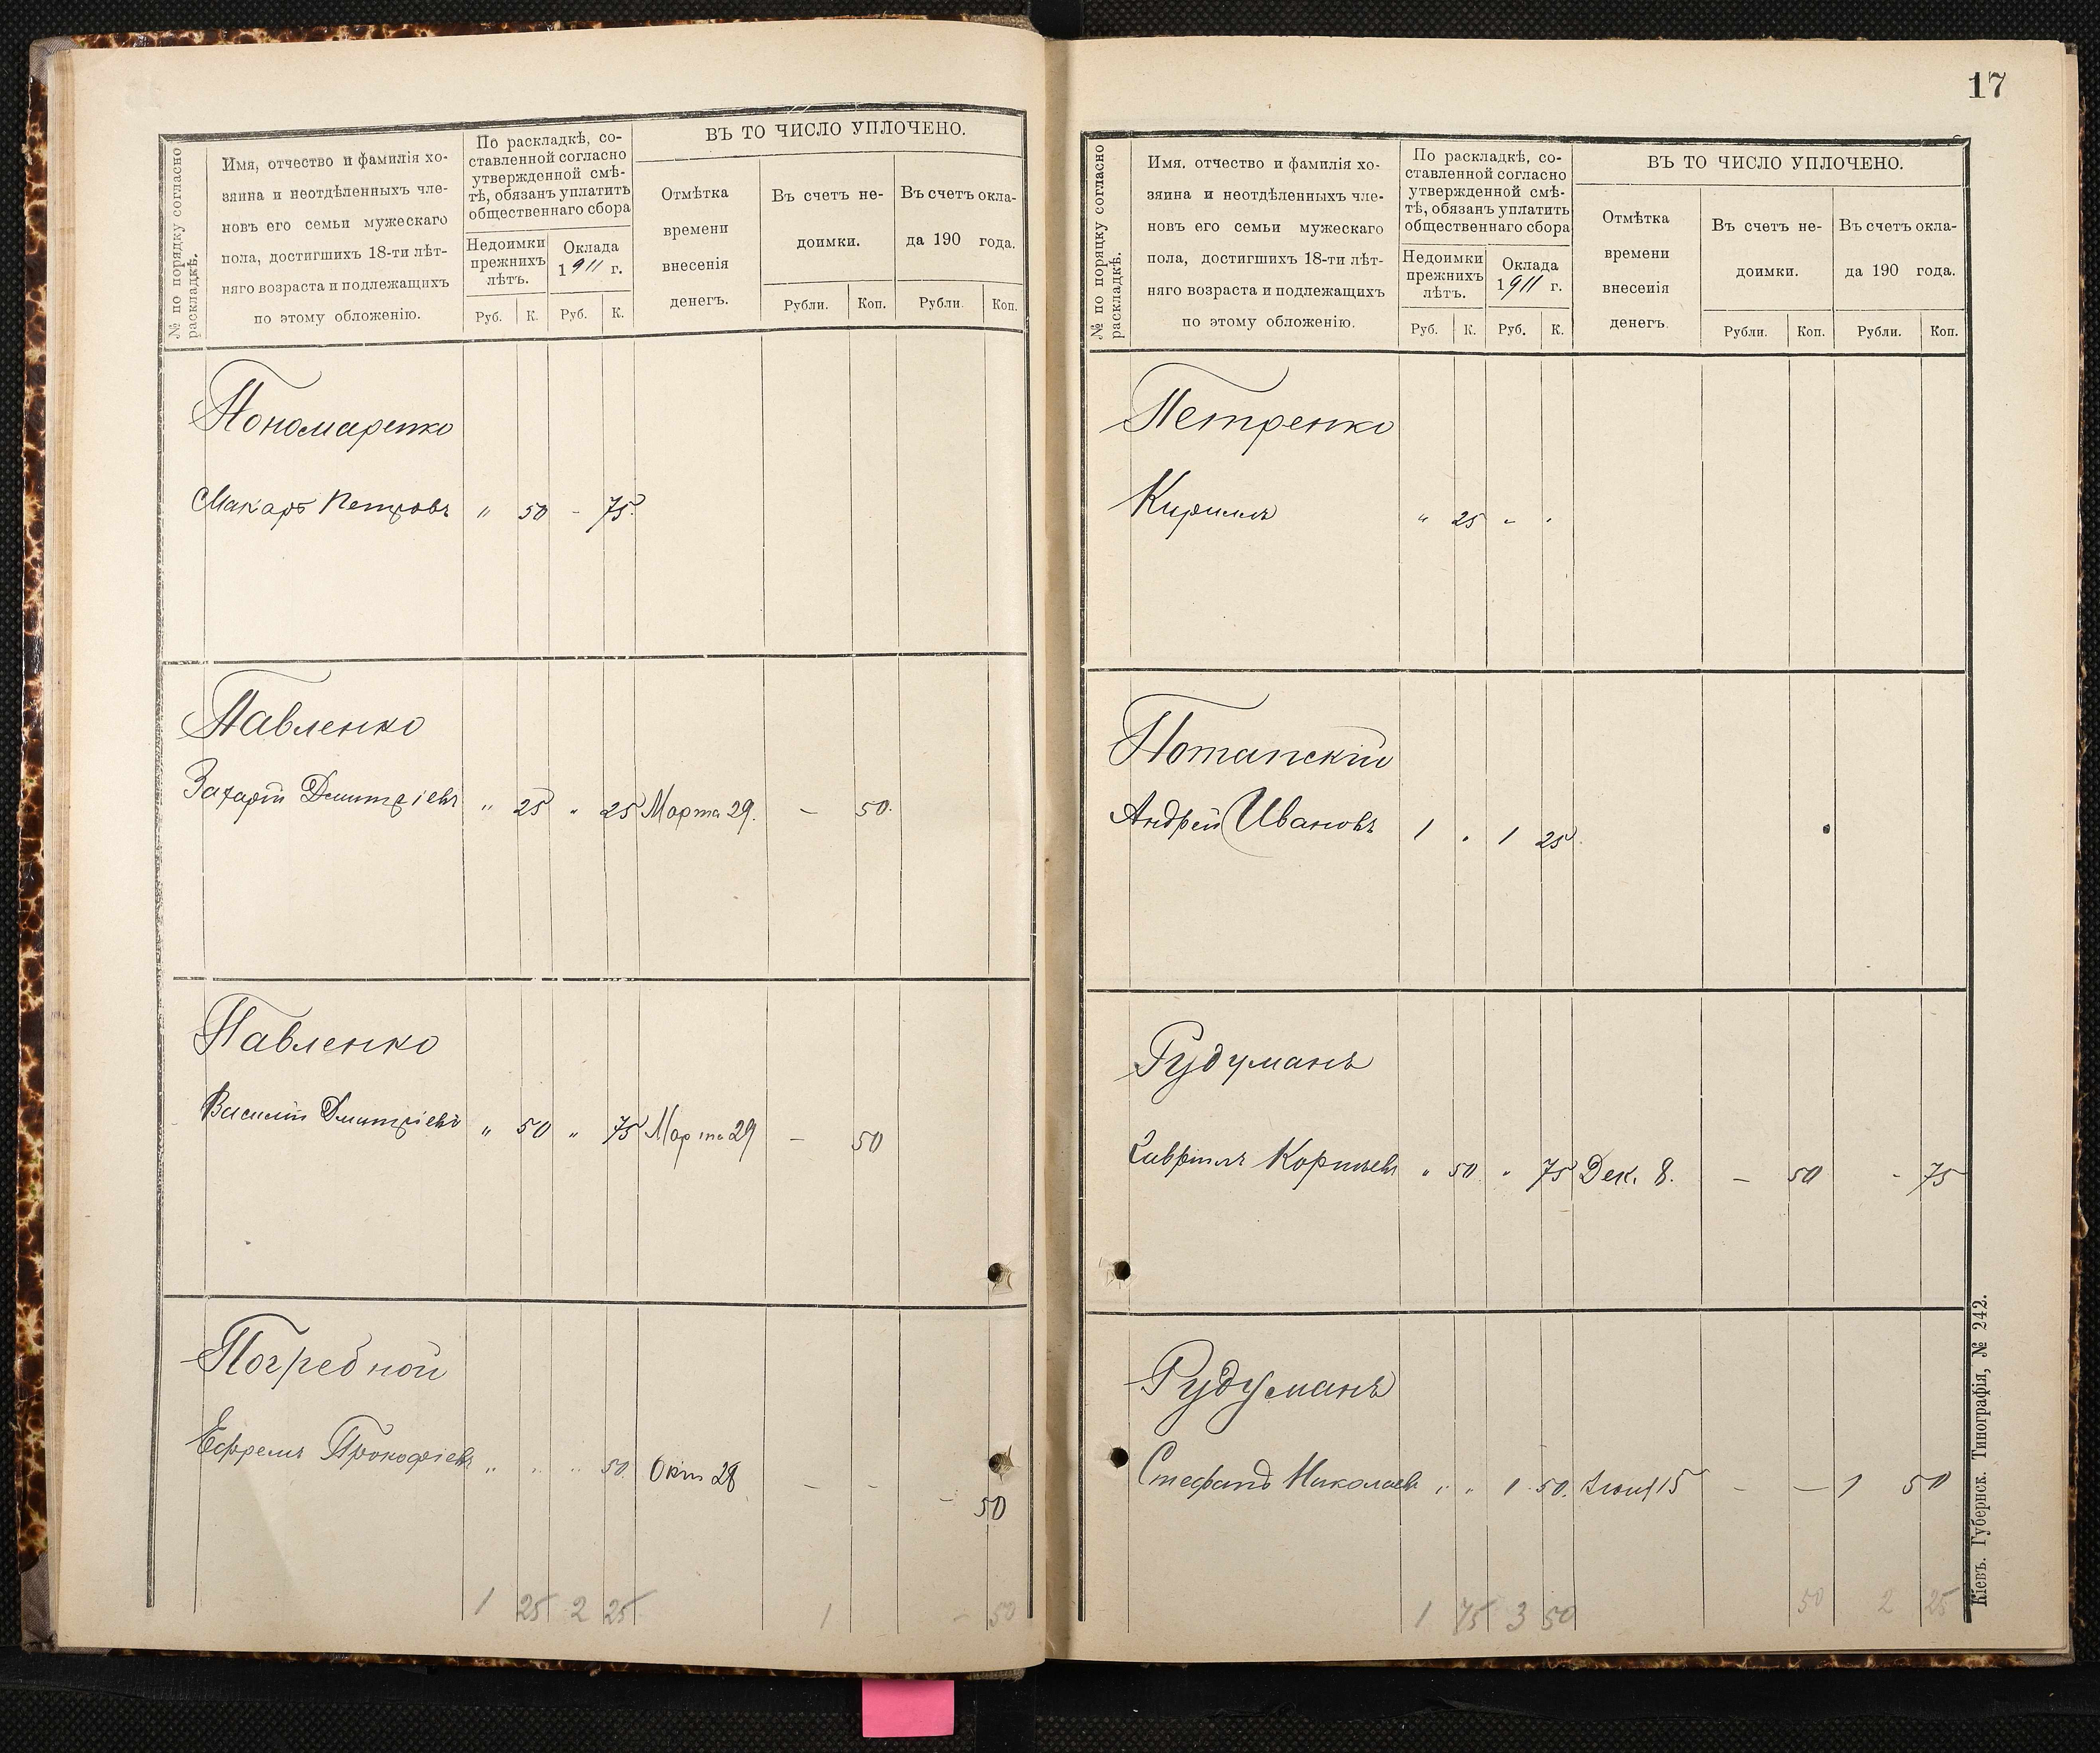 № по порядку согласно
раскладкѣ.
Имя, отчество и фамилія хо-
зяина и неотдѣленныхъ чле-
новъ его семьи мужескаго
пола, достигшихъ 18-ти лѣт-
няго возраста и подлежащихъ
по этому обложенію.
По раскладкѣ, со-
ставленной согласно
утвержденной смѣ-
тѣ, обязанъ уплатить
общественнаго сбора
Недоимки
прежнихъ
лѣтъ.
Оклада
1911 г.
Руб. К. Руб. К.
ВЪ ТО ЧИСЛО УПЛОЧЕНО.
Отмѣтка
времени
внесенія
денегъ.
Въ счетъ не-
доимки.
Въ счетъ окла-
да 190 года.
Рубли. Коп. Рубли. Коп.
Пономаренко
Макаръ Петровъ " 50 - 75.
Павленко
Захарій Дмитріевъ " 25 " 25 Марта 29. — 50.
Павленко
Василій Дмитріевъ " 50 " 75 Марта 29 — 50
Погребной
Ефремъ Прокофіевъ " " " 50. Окт 28 — - -
50
1 25 2 25 1 - 50
17
№ по порядку согласно
раскладкѣ.
Имя, отчество и фамилія хо-
зяина и неотдѣленныхъ чле-
новъ его семьи мужескаго
пола, достигшихъ 18-ти лѣт-
няго возраста и подлежащихъ
по этому обложенію.
По раскладкѣ, со-
ставленной согласно
утвержденной смѣ-
тѣ, обязанъ уплатить
общественнаго сбора
Недоимки
прежнихъ
лѣтъ.
Оклада
1911 г.
Руб. К. Руб. К.
ВЪ ТО ЧИСЛО УПЛОЧЕНО.
Отмѣтка
времени
внесенія
денегъ.
Въ счетъ не-
доимки.
Въ счетъ окла-
да 190 года.
Рубли. Коп. Рубли. Коп.
Петренко
Кириллъ " 25 " "
Потапскій
Андрей Ивановъ 1 " 1 25.
Рудуманъ
Гавріилъ Корнѣевъ " 50 " 75 Дек. 8. — 50 - 75
Рудуманъ
Стефанъ Николаевъ " " 1 50. Іюня 15 — — 1 50
1 75 3 50 50 2 25
Кіевъ. Губернск. Типографія, № 242.